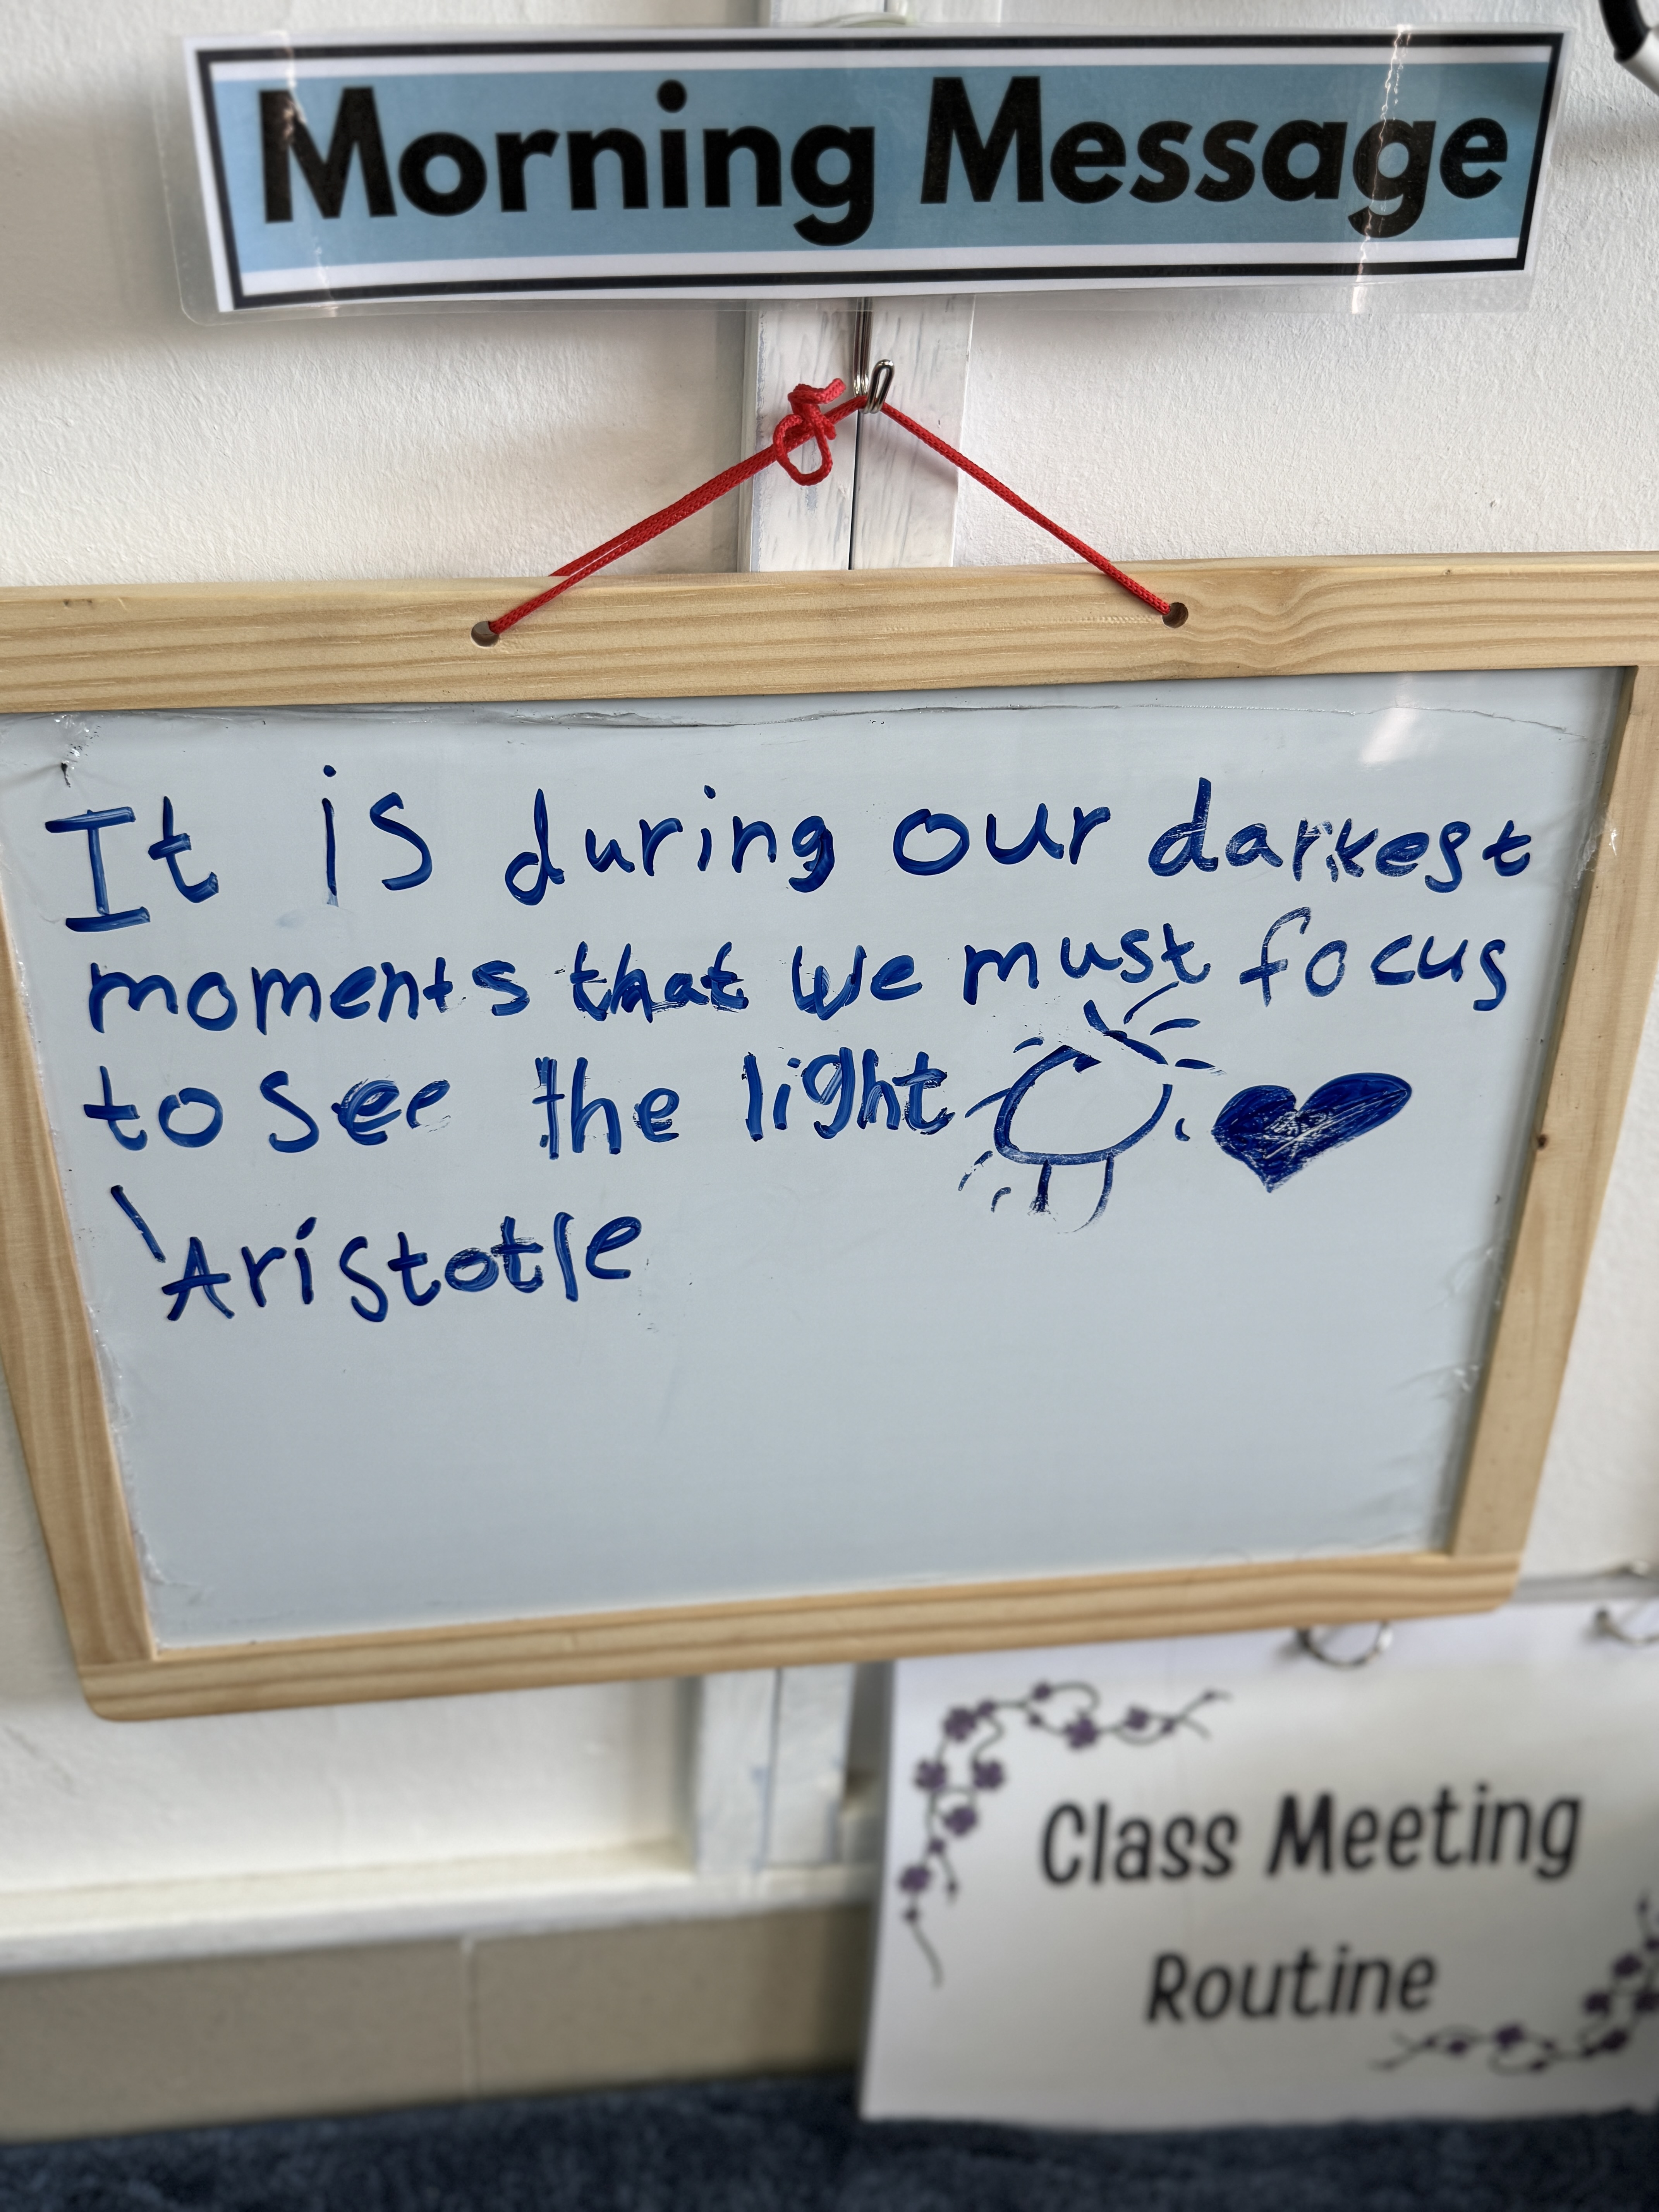 Morning Message
It is during our darkest
moments that we must focus
to see the light
Aristotle
Class Meeting
Routine